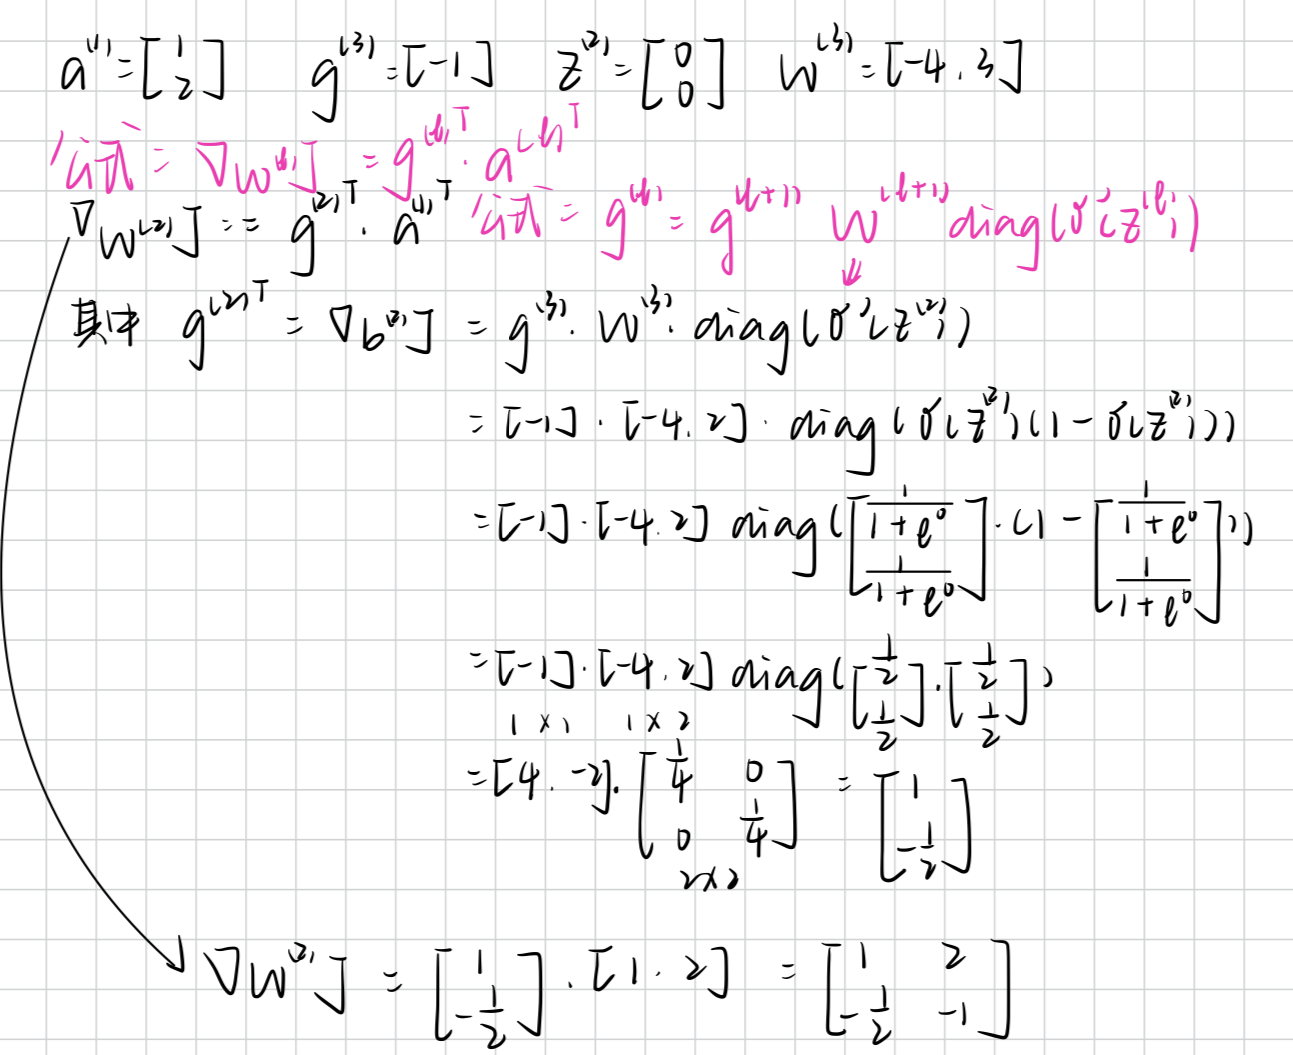 a⁽¹⁾ = [1 2] g⁽³⁾ = [-1] z⁽²⁾ = [0 0] W⁽³⁾ = [-4, 3]
公式: ∇W⁽ˡ⁾J = g⁽ˡ⁾ᵀ · a⁽ˡ⁾ᵀ
∇W⁽²⁾J == g⁽²⁾ᵀ · a⁽¹⁾ᵀ 公式: g⁽ˡ⁾ = g⁽ˡ⁺¹⁾ W⁽ˡ⁺¹⁾ diag(σ'(z⁽ˡ⁾))
其中 g⁽²⁾ᵀ = ∇b⁽²⁾J = g⁽³⁾ · W⁽³⁾ · diag(σ'(z⁽²⁾))
= [-1] · [-4, 2] · diag(σ(z⁽²⁾)(1-σ(z⁽²⁾)))
= [-1] · [-4, 2] diag([1/(1+e⁰) 1/(1+e⁰)] · (1 - [1/(1+e⁰) 1/(1+e⁰)]))
= [-1] · [-4, 2] diag([1/2 1/2] · [1/2 1/2])
1×1 1×2
= [4, -2] · [1/4 0 0 1/4] = [1 -1/2]
2×2
∇W⁽²⁾J = [1 -1/2] · [1, 2] = [1 2 -1/2 -1]